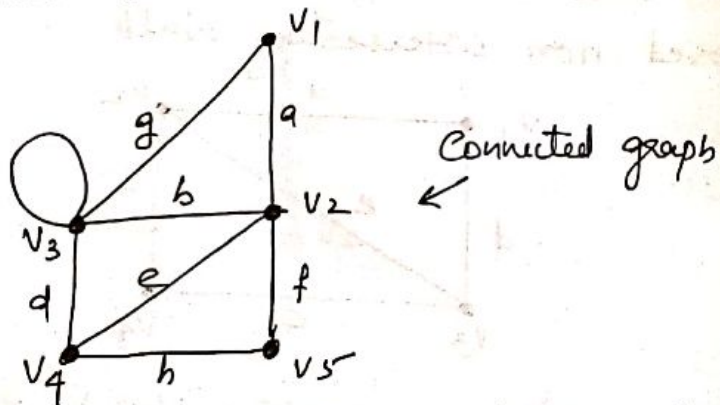 V1
g
a
Connected graph
b
V2
V3
d
e
f
V4
h
V5